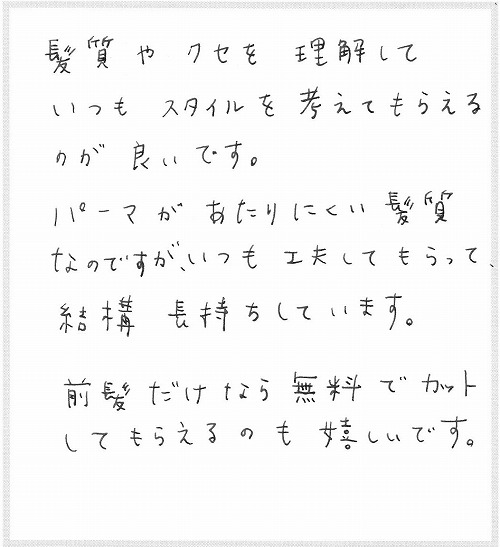 髪質や クセを 理解して
いつも スタイルを 考えてもらえる
のが 良いです。
パーマが あたりにくい 髪質
なのですが、いつも 工夫してもらって、
結構 長持ちしています。
前髪だけなら 無料でカット
してもらえるのも 嬉しいです。